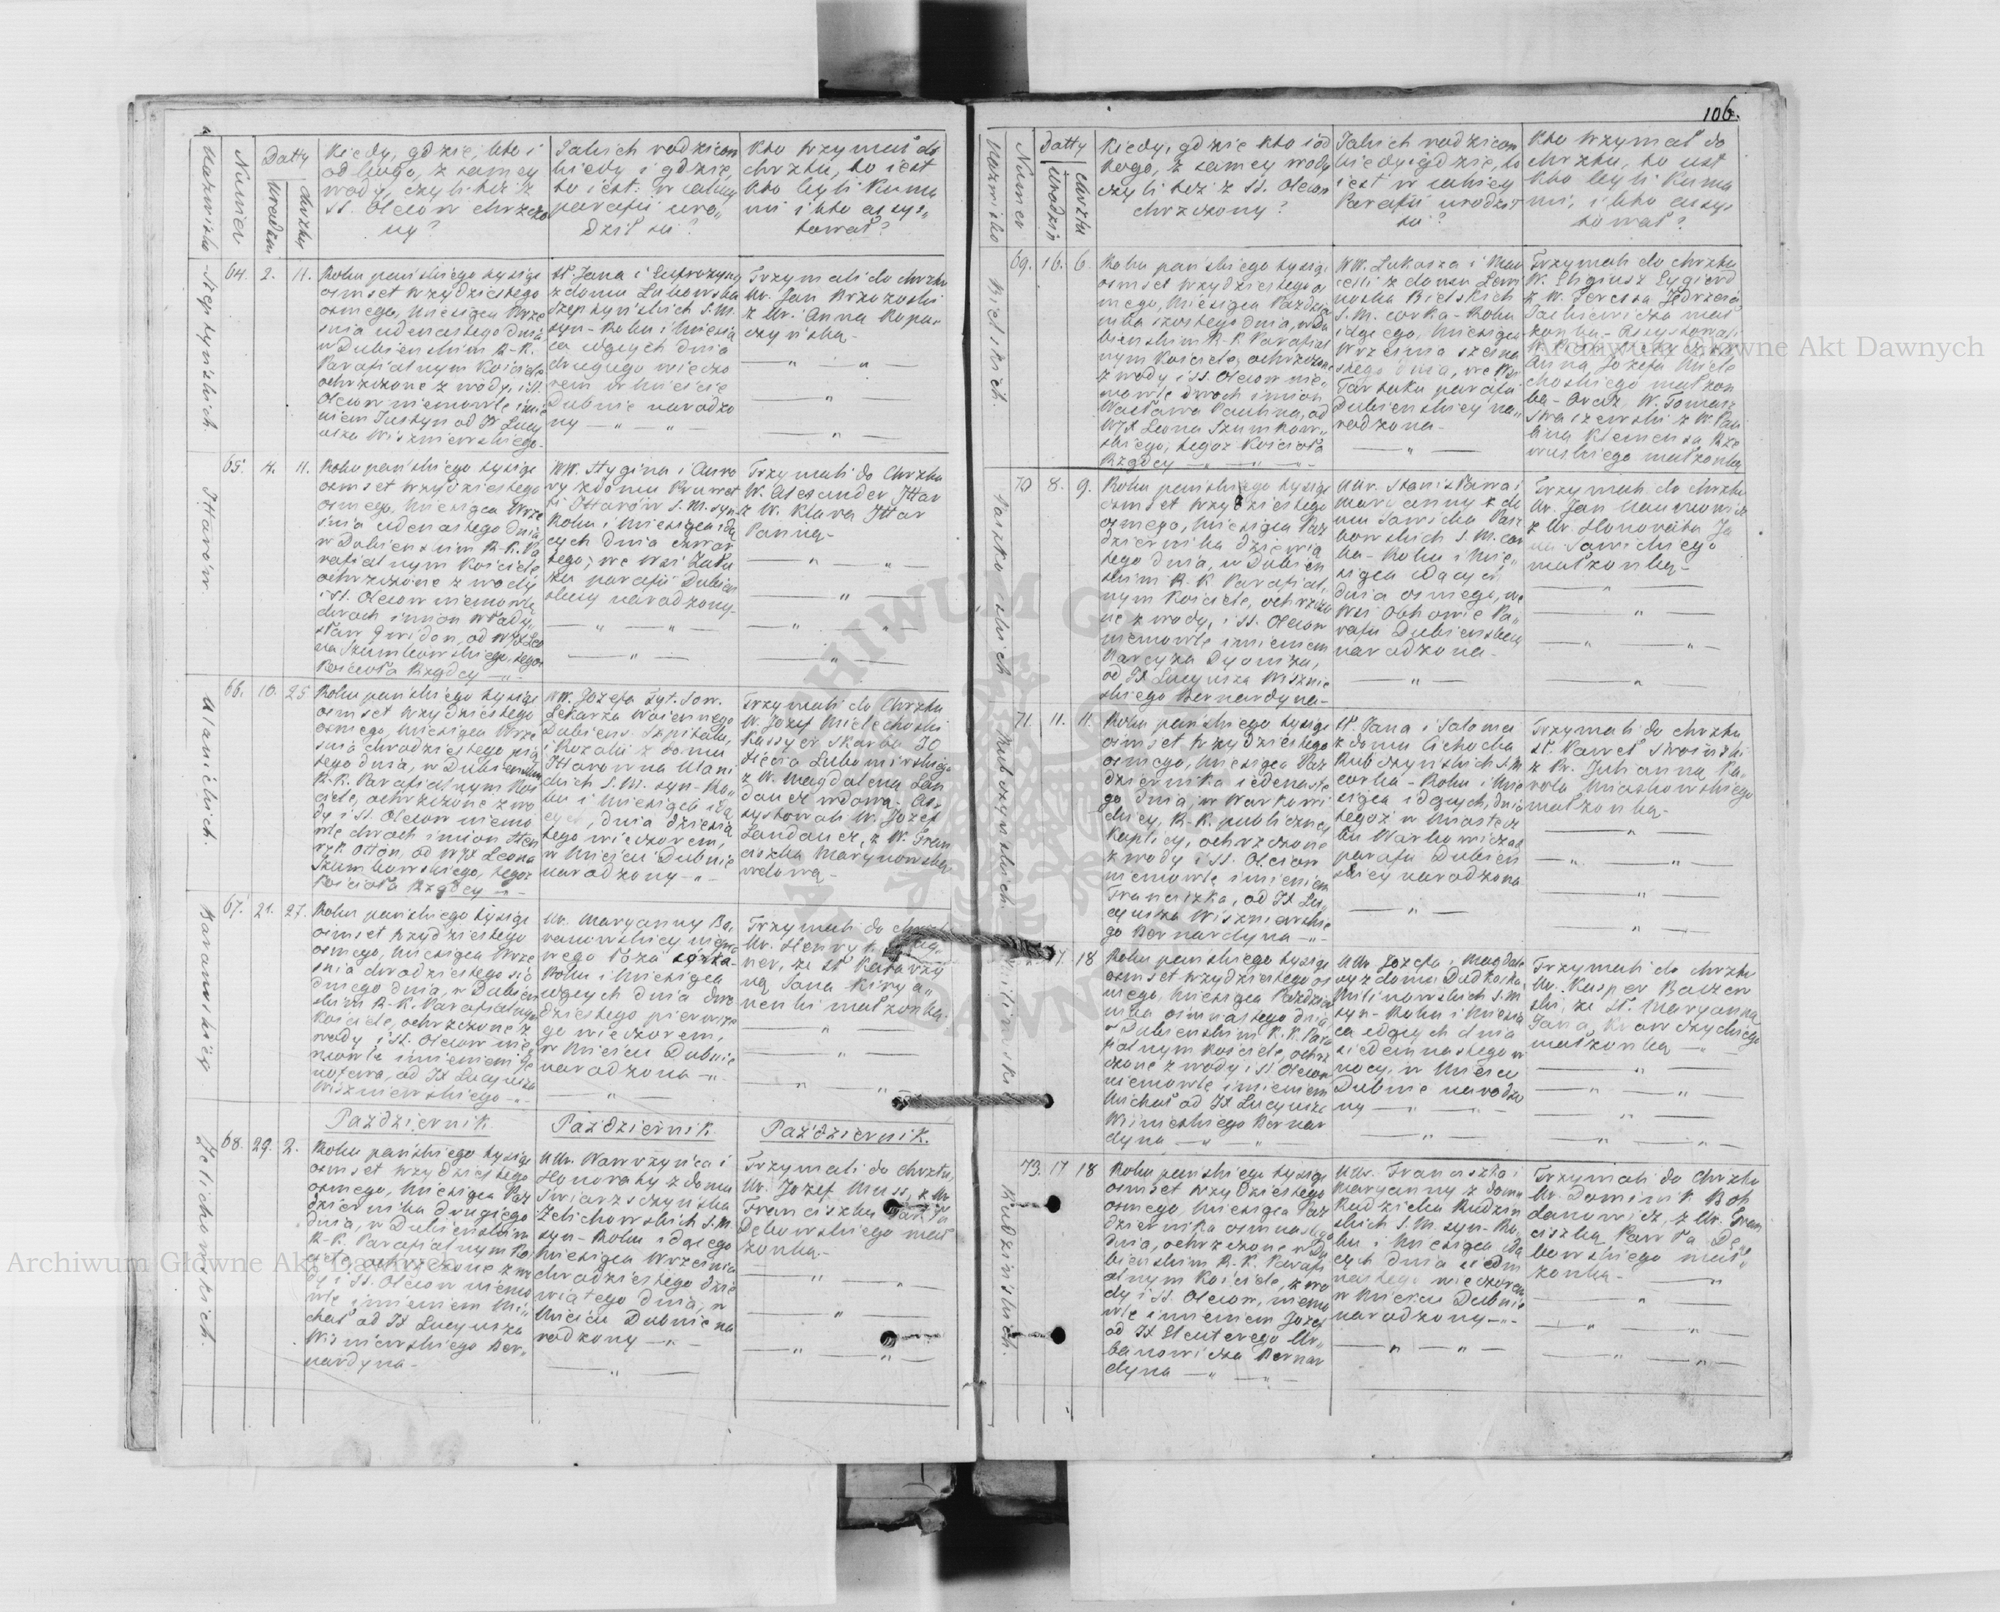 106.
Nazwisko
Numer
Datty
urodzin
chrztu
Kiedy, gdzie, kto i
od kogo, z samey
wody, czyli też z
SS. Oleiow chrzczo
ny?
Jakich rodzicow
kiedy i gdzie,
to iest: w iakiey
parafii uro„
dził się?
Kto trzymał do
chrztu, to iest
kto byli Kuma
mi i kto assys„
tował?
64. 2. 11.
Roku pańskiego tysiąc
osmset trzydziestego
osmego, Miesiąca Wrze
snia iedenastego dnia
w Dubienskim R-K.
Parafialnym Kościele
ochrzczone z wody, i SS.
Oleiow niemowle imie
niem Justyn od JX Lucy
usza Wiszniewskiego.
Sł. Jana i Eufrozyny
z domu Lukowska
Szeptyńskich S. M.
syn - Roku i Miesią
ca tychże dnia
drugiego wieczo
rem w Mieście
Dubnie narodzo
ny
Trzymali do chrztu
Ur. Jan Brzozoski
z Ur. Anną Kopa„
czyńską.
65. 4. 11.
Ittarów
Roku pańskiego tysiąc
osmset trzydziestego
osmego, Miesiąca Wrze
snia iedenastego dnia
w Dubienskim R-K. Pa
rafialnym Kościele
ochrzczone z wody
i SS. Oleiow niemowle
dwoch imion Włady„
sław Gwidon, od WJX Leo
na Szumkowskiego, tegoż
Kościoła Rządcy
WW. Hygina i Auro
ry z domu Kruwet
ti Ittarów S. M. syn
Roku i Miesiąca idą
cych dnia czwar
tego, we Wsi
parafii Dubien
skiey narodzony.
Trzymali do Chrztu
W. Alexander Ittar
z W. Klarą Ittar
Panną.
66. 10. 25.
Ulanickich.
Roku pańskiego tysiąc
osmset trzydziestego
osmego, Miesiąca Wrze
snia dwudziestego pią
tego dnia, w Dubienskim
R-K. Parafialnym Koś
ciele, ochrzczone z wo
dy i SS. Oleiow niemo
wle dwoch imion Hen
ryk Otton, od WJX Leona
Szumkowskiego, tegoż
Kościoła Rządcy
WW. Józefa Tyt. Sow.
Lekarza Woiennego
Dubiens. Szpitala,
i Rozalii z domu
Ittarowna Ulani
ckich S. M. syn - Ro„
ku i Miesiąca idą
cych, dnia dziesią
tego wieczorem,
w Mieście Dubnie
narodzony
Trzymali do Chrztu
W. Józef Mielechoski
Kassyer Skarbu JO
Xięcia Lubomirskiego
z W. Magdaleną Lan
dauer wdową - As„
systowali W. Józef
Landauer, z W. Fran
ciszką Marynowską
wdową
67. 21. 27.
Baranowskiey
Roku pańskiego tysiąc
osmset trzydziestego
osmego, Miesiąca Wrze
snia dwudziestego sió
dmego dnia, w Dubien
skim R-K. Parafialnym
Kościele, ochrzczone z
wody i SS. Oleiow nie
mowle imieniem
od JX Lucyusza
Wiszniewskiego
Ur. Maryanny Ba„
ranowskiey niepra
wego łoża córka.
Roku i Miesiąca
idących dnia dwu
dziestego pierwsze
go wieczorem,
w Mieście Dubnie
narodzona
Trzymali do chrztu
Ur. Henryk
ner, ze Sł. Katarzy
ną Jana Kirya„
nenki małżonką.
Październik
Październik
Październik.
68. 29. 2.
Zelichowskich.
Roku pańskiego tysiąc
osmset trzydziestego
osmego, Miesiąca Paź
dziernika drugiego
dnia, w Dubienskim
R-K. Parafialnym Ko
ściele, ochrzczone z wo
dy i SS. Oleiow niemo
wle imieniem Mi„
chał od JX Lucyusza
Wiszniewskiego Ber„
nardyna
UUr. Wawrzyńca i
Honoraty z domu
Swiarzczyńska
Zelichowskich S. M.
syn - Roku idącego
Miesiąca Września
dwudziestego dzie
wiątego dnia, w
Mieście Dubnie na
rodzony
Trzymali do chrztu,
Ur. Jozef Muss, z Ur.
Franciszką
Dębowskiego mał
żonką.
Nazwisko
Numer
Datty
urodzin
chrztu
Kiedy, gdzie kto i od
kogo, z samey wody
czyli też z SS. Oleiow
chrzczony?
Jakich rodzicow
kiedy i gdzie, to
iest w iakiey
Parafii urodził
się?
Kto trzymał do
chrztu, to iest
kto byli Kuma
mi, i kto assys„
tował?
69. 16. 6
Bielskich.
Roku pańskiego tysiąc
osmset trzydziestego o„
smego, Miesiąca Paździer
nika szostego dnia, w Du
bienskim R-K Parafial
nym Kościele, ochrzczone
z wody i SS. Oleiow nie„
mowle dwoch imion
Wacława Paulina, od
WJX Leona Szumkow„
skiego, tegoż Kościoła
Rządcy
WW. Lukasza i
z domu
Bielskich
S. M. córka - Roku
idącego, Miesiąca
Września szesna
stego dnia, we Wsi
Tarkaku parafii
Dubienskiey na„
rodzona.
Trzymali do chrztu
W. Eligiusz
z W. Teressą Jędrzeia
mał
żonką - Assystowali
Anną Józefa Miele
choskiego małżon
ką - Oraz W. Tomasz
Straszewski z W. Pau
liną Klemensa Rze
wuskiego małżonką
70 8. 9.
Paszkowskich
Roku pańskiego tysiąc
osmset trzydziestego
osmego, Miesiąca Paź
dziernika dziewią
tego dnia, w Dubien
skim R-K Parafial„
nym Kościele, ochrzczo
ne z wody, i SS. Oleiow
niemowle imieniem
Narcyza Dyoniza,
od JX Lucyusza Wisznie
skiego Bernardyna
UUr. Stanisława i
Maryanny z do
mu Sawicka Pasz
kowskich S. M. cor
ka - Roku i Mie„
siąca idących
dnia osmego, we
Wsi Obhowie Pa
rafii Dubienskiey
narodzona.
Trzymali do chrztu
Ur. Jan Naumowicz
z Ur. Honoratą Ja
na Sawickiego
małżonką
71. 11. 11.
Kubczyńskich.
Roku pańskiego tysiąc
osmset trzydziestego
osmego, Miesiąca Paź
dziernika iedenaste
go dnia, w Warkowi
ckiey, R-K. publiczney
Kaplicy, ochrzczone
z wody i SS. Oleiow
niemowle imieniem
Franciszka, od JX Lu„
cyusza Wiszniewskie
go Bernardyna
Sł. Jana i Salomei
z domu Cichocka
Kubczyńskich S. M
corka - Roku i Mie
siąca idących, dnia
tegoż w Miastecz
ku Warkowiczach
parafii Dubień
skiey narodzona
Trzymali do chrztu
Sł. Paweł Strosiński
z Ur. Julianną Ka„
rola Miaskowskiego
małżonką
17. 18
Milinowskich
Roku pańskiego tysiąc
osmset trzydziestego os
mego, Miesiąca Paździer
nika osmnastego dnia
w Dubienskim R. K. Para
fialnym Kościele, ochrz
czone z wody i SS Oleiow
niemowle imieniem
Michał od JX Lucyusza
Wiśnieskiego Bernar
dyna
UUr. Józefa i Magdale
ny z domu Dudkoska
Milinowskich S. M
syn - Roku i Miesią
ca idących dnia
siedemnastego w
nocy, w Mieście
Dubnie narodzo
ny
Trzymali do chrztu
Ur. Kasper Balzew
ski, ze Sł. Maryanną
Jana Krawczyckiego
małżonką
73. 17 18
Rudzińskich.
Roku pańskiego tysiąc
osmset trzydziestego
osmego, Miesiąca Paź
dziernika osmnastego
dnia, ochrzczone w Du
bienskim R. K. Parafi
alnym Kościele, z wo
dy i SS. Oleiow, niemo
wle imieniem Jozef
od JX Eleuterego Ur„
banowicza Bernar
dyna
UUr. Franciszka i
Maryanny z domu
Rudzicka Rudzin
skich S. M. syn - Ro„
ku i Miesiąca idą
cych dnia siedm
nastego wieczorem
w Mieście Dubnie
narodzony
Trzymali do Chrztu
Ur. Dominik Boh
danowicz, z Ur. Fran
ciszką Pawła Dę„
bowskiego mał„
żonką
Archiwum Główne Akt Dawnych
Archiwum Główne Akt Dawnych